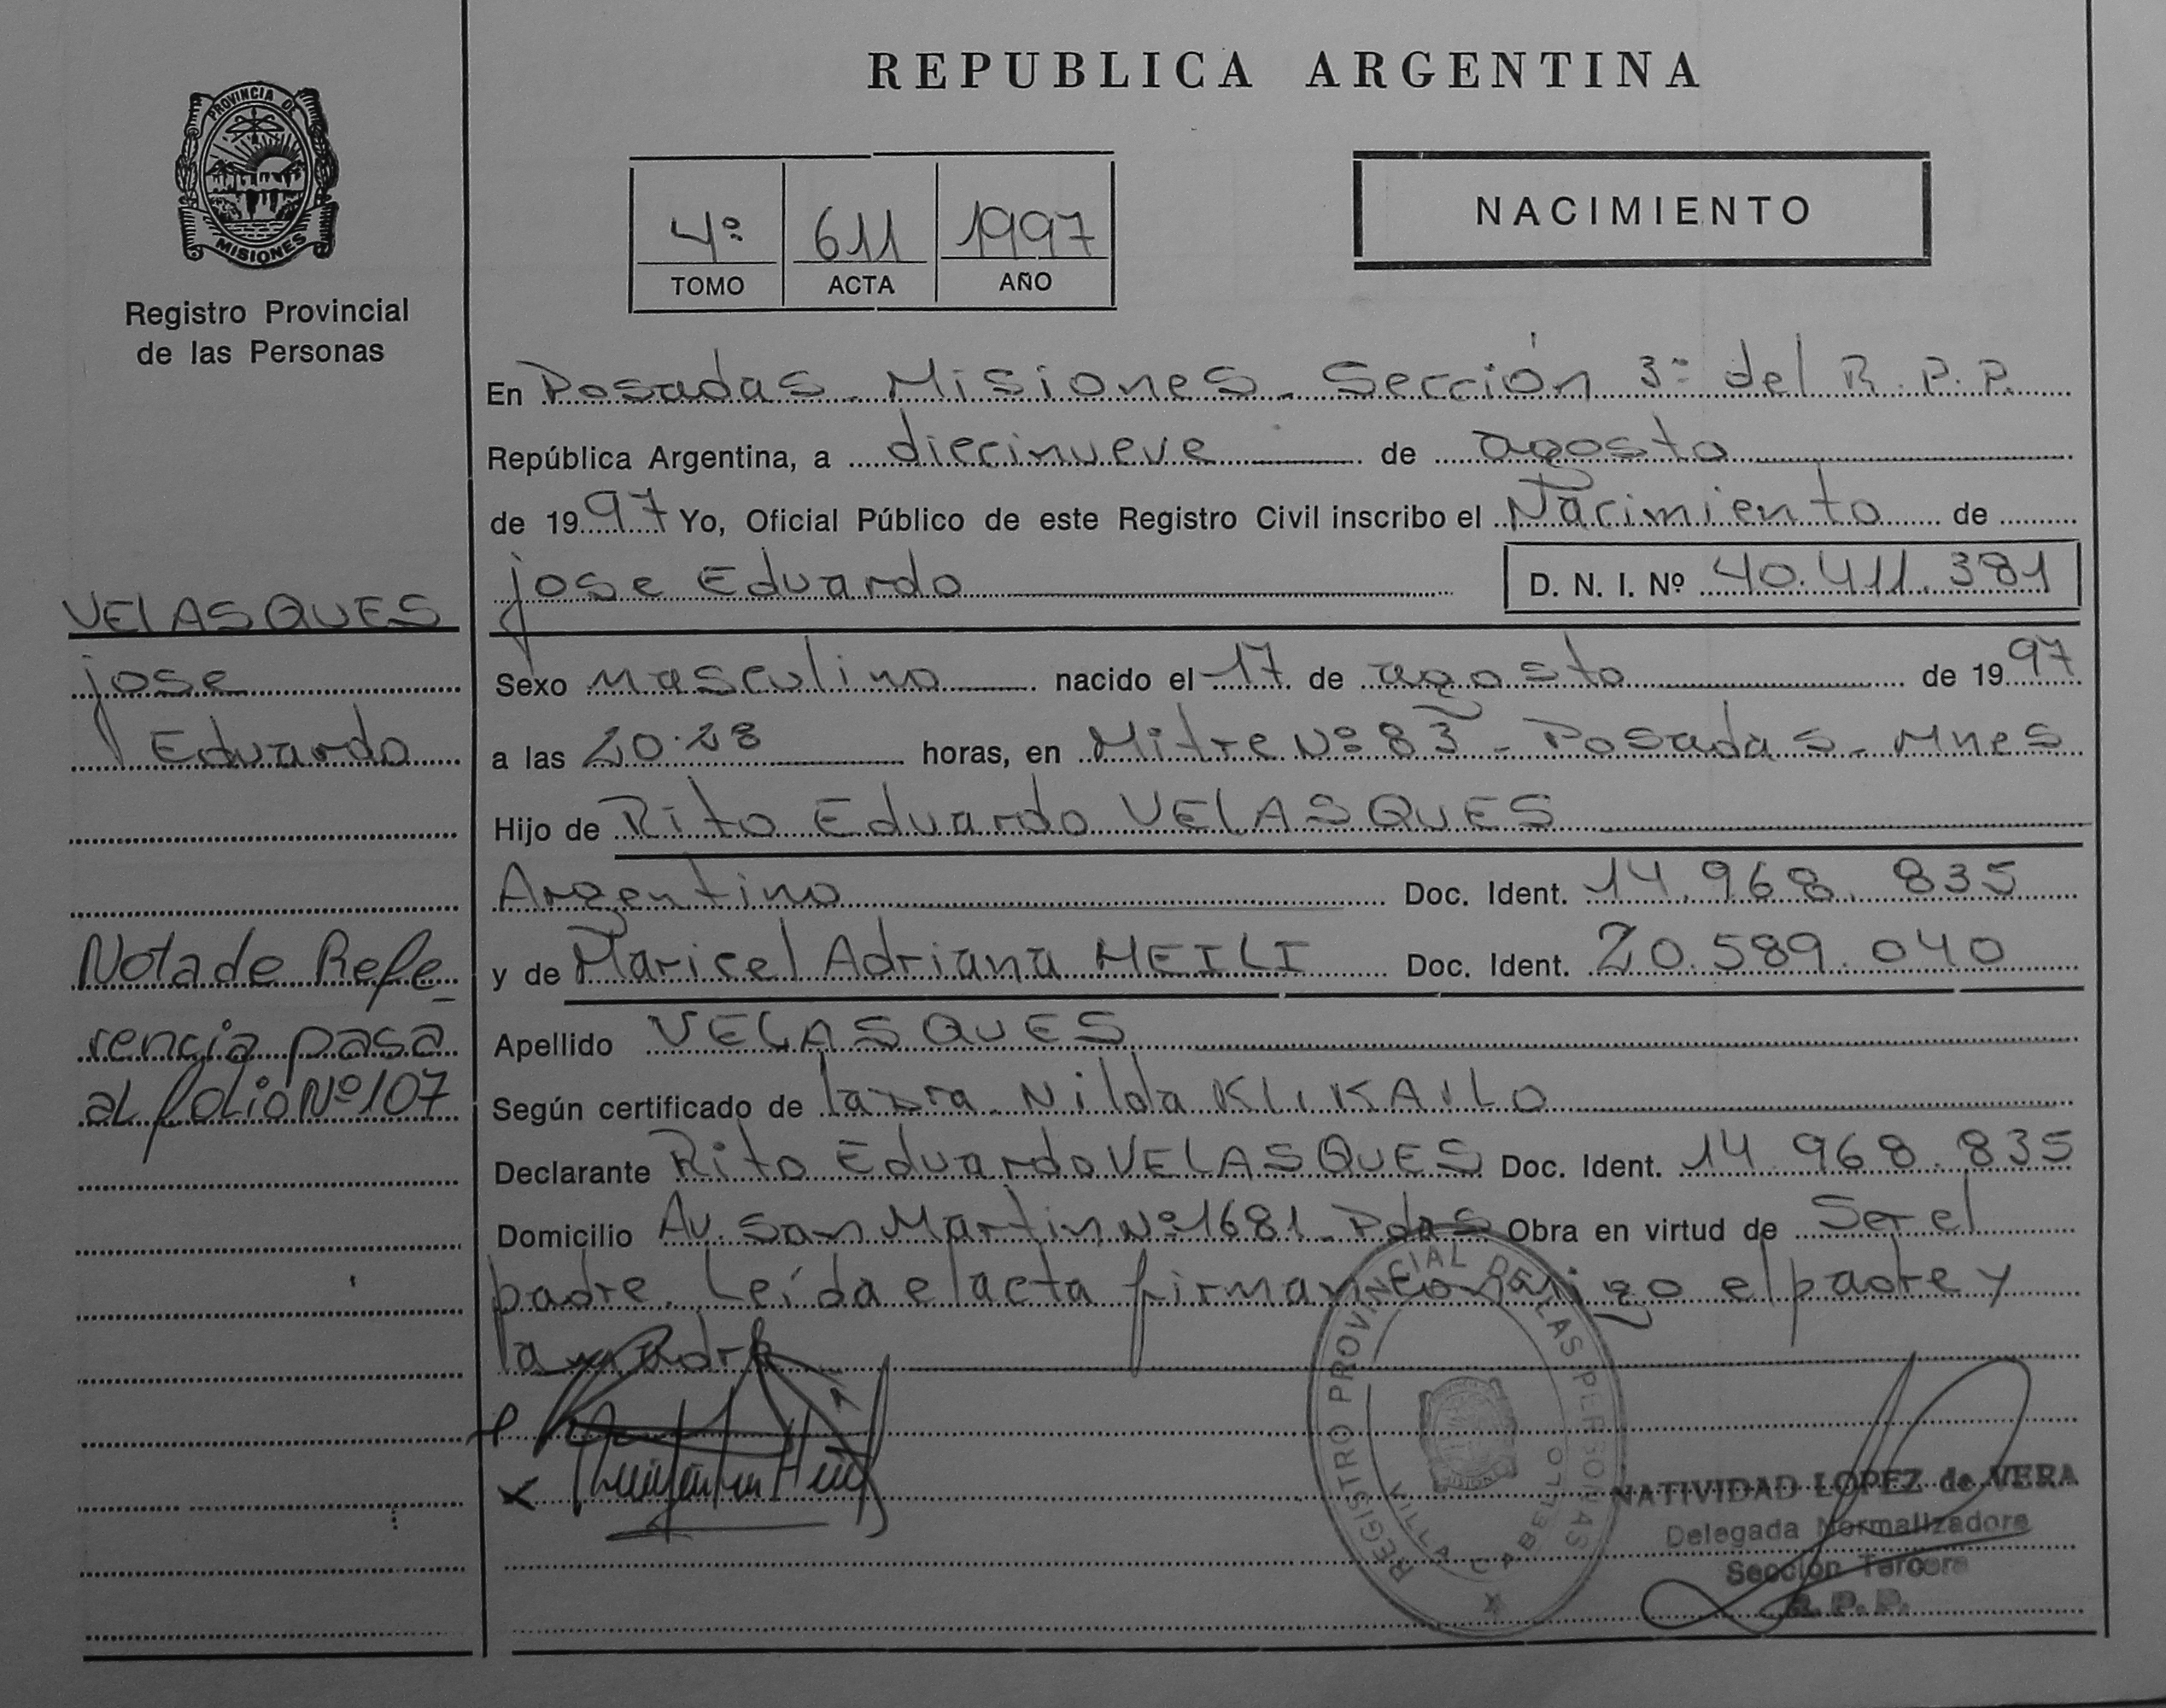 REPUBLICA ARGENTINA
PROVINCIA DE
MISIONES
Registro Provincial
de las Personas
4º 611 1997
TOMO ACTA AÑO
NACIMIENTO
En Posadas - Misiones - Sección 3º del R. P. P.
República Argentina, a diecinueve de agosto
de 1997 Yo, Oficial Público de este Registro Civil inscribo el Nacimiento de
jose Eduardo D. N. I. Nº 40.411.381
VELASQUES
jose
Eduardo
Sexo masculino nacido el 17 de agosto de 1997
a las 20.28 horas, en Mitre Nº 83 - Posadas - Mnes
Hijo de Rito Eduardo VELASQUES
Argentino Doc. Ident. 14.968.835
y de Maricel Adriana HEILI Doc. Ident. 20.589.040
Apellido VELASQUES
Según certificado de la Dra. Nilda KLIKAILO
Declarante Rito Eduardo VELASQUES Doc. Ident. 14.968.835
Domicilio Av. San Martin Nº 1681 - Pdas Obra en virtud de Ser el
padre. Leída el acta firman conmigo el padre y
la madre
Nota de Refe_
rencia pasa
al folio Nº 107
REGISTRO PROVINCIAL DE LAS PERSONAS
VILLA CABELLO
NATIVIDAD LOPEZ de VERA
Delegada Normalizadora
Sección Tercera
R. P. P.